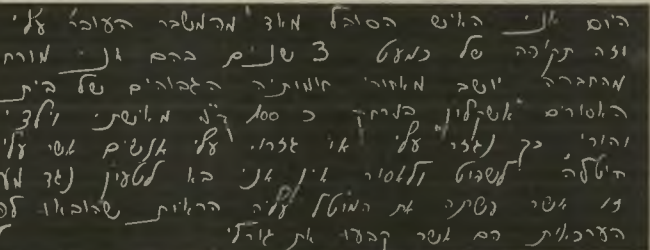 היום אני האיש הסובל מאד מהמשבר העובר עלי
וזה תקופה של כמעט 3 שנים בהם אני מורחק
מהחברה יושב מאחורי חומותיה הגבוהים של בית
האסורים אשקלון במרחק כ 100 ק"מ מאישתי וילדי
והורי כך נגזר עלי או גזרו עלי אנשים אשר עליהם
הוטלה לשפוט ולאסור אין אני בא לטעון נגד
זו אשר פשתה את המוטל עליה הראיות שהובאו
הערכאית הם אשר קבעו את גורלי